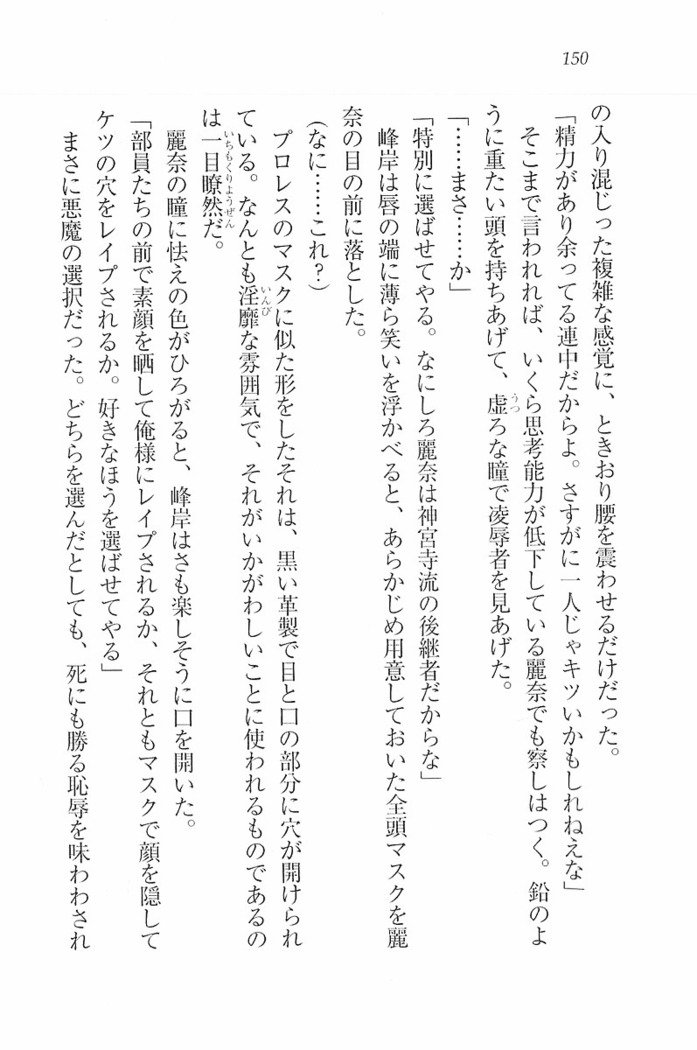 150
の入り混じった複雑な感覚に、ときおり腰を震わせるだけだった。
「精力があり余ってる連中だからよ。さすがに一人じゃキツいかもしれねえな」
そこまで言われれば、いくら思考能力が低下している麗奈でも察しはつく。鉛のよ
うに重たい頭を持ちあげて、虚ろな瞳で凌辱者を見あげた。
「……まさ……か」
「特別に選ばせてやる。なにしろ麗奈は神宮寺流の後継者だからな」
峰岸は唇の端に薄ら笑いを浮かべると、あらかじめ用意しておいた全頭マスクを麗
奈の目の前に落とした。
(なに……これ?)
プロレスのマスクに似た形をしたそれは、黒い革製で目と口の部分に穴が開けられ
ている。なんとも淫靡な雰囲気で、それがいかがわしいことに使われるものであるの
は一目瞭然だ。
麗奈の瞳に怯えの色がひろがると、峰岸はさも楽しそうに口を開いた。
「部員たちの前で素顔を晒して俺様にレイプされるか、それともマスクで顔を隠して
ケツの穴をレイプされるか。好きなほうを選ばせてやる」
まさに悪魔の選択だった。どちらを選んだとしても、死にも勝る恥辱を味わわされ